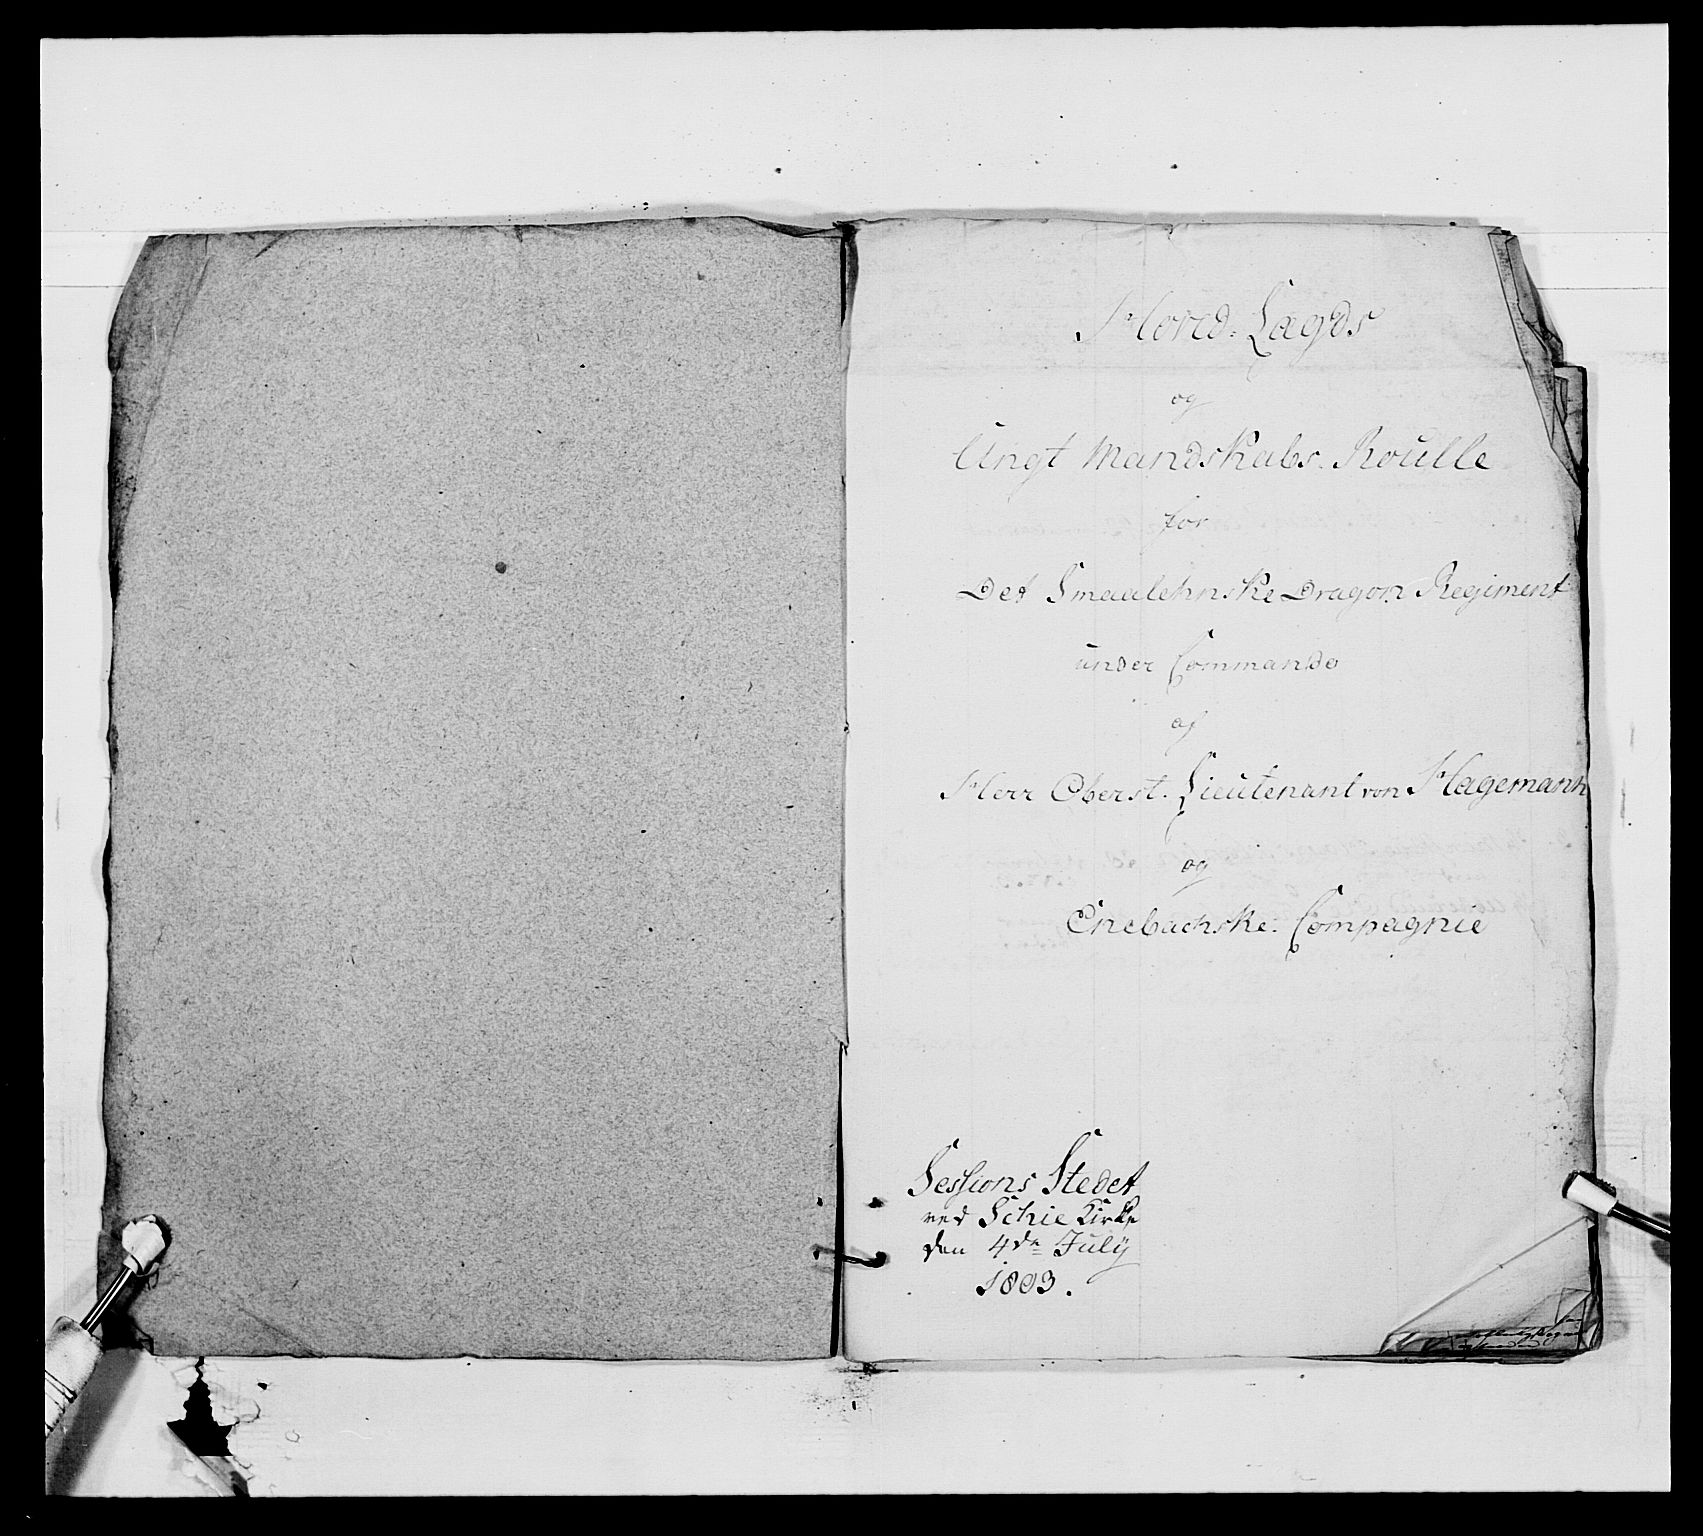 Hoved-Lægds
og
Ungt Mandskabs. Roulle
for
Det Smaalehnske Dragon Regiment
under Commando
af
Herr Oberst. Lieutenant von Hagemann
og
Enebachske. Compagnie
Sessions Stedet
ved Schie Kirke
den 4de July
1803.